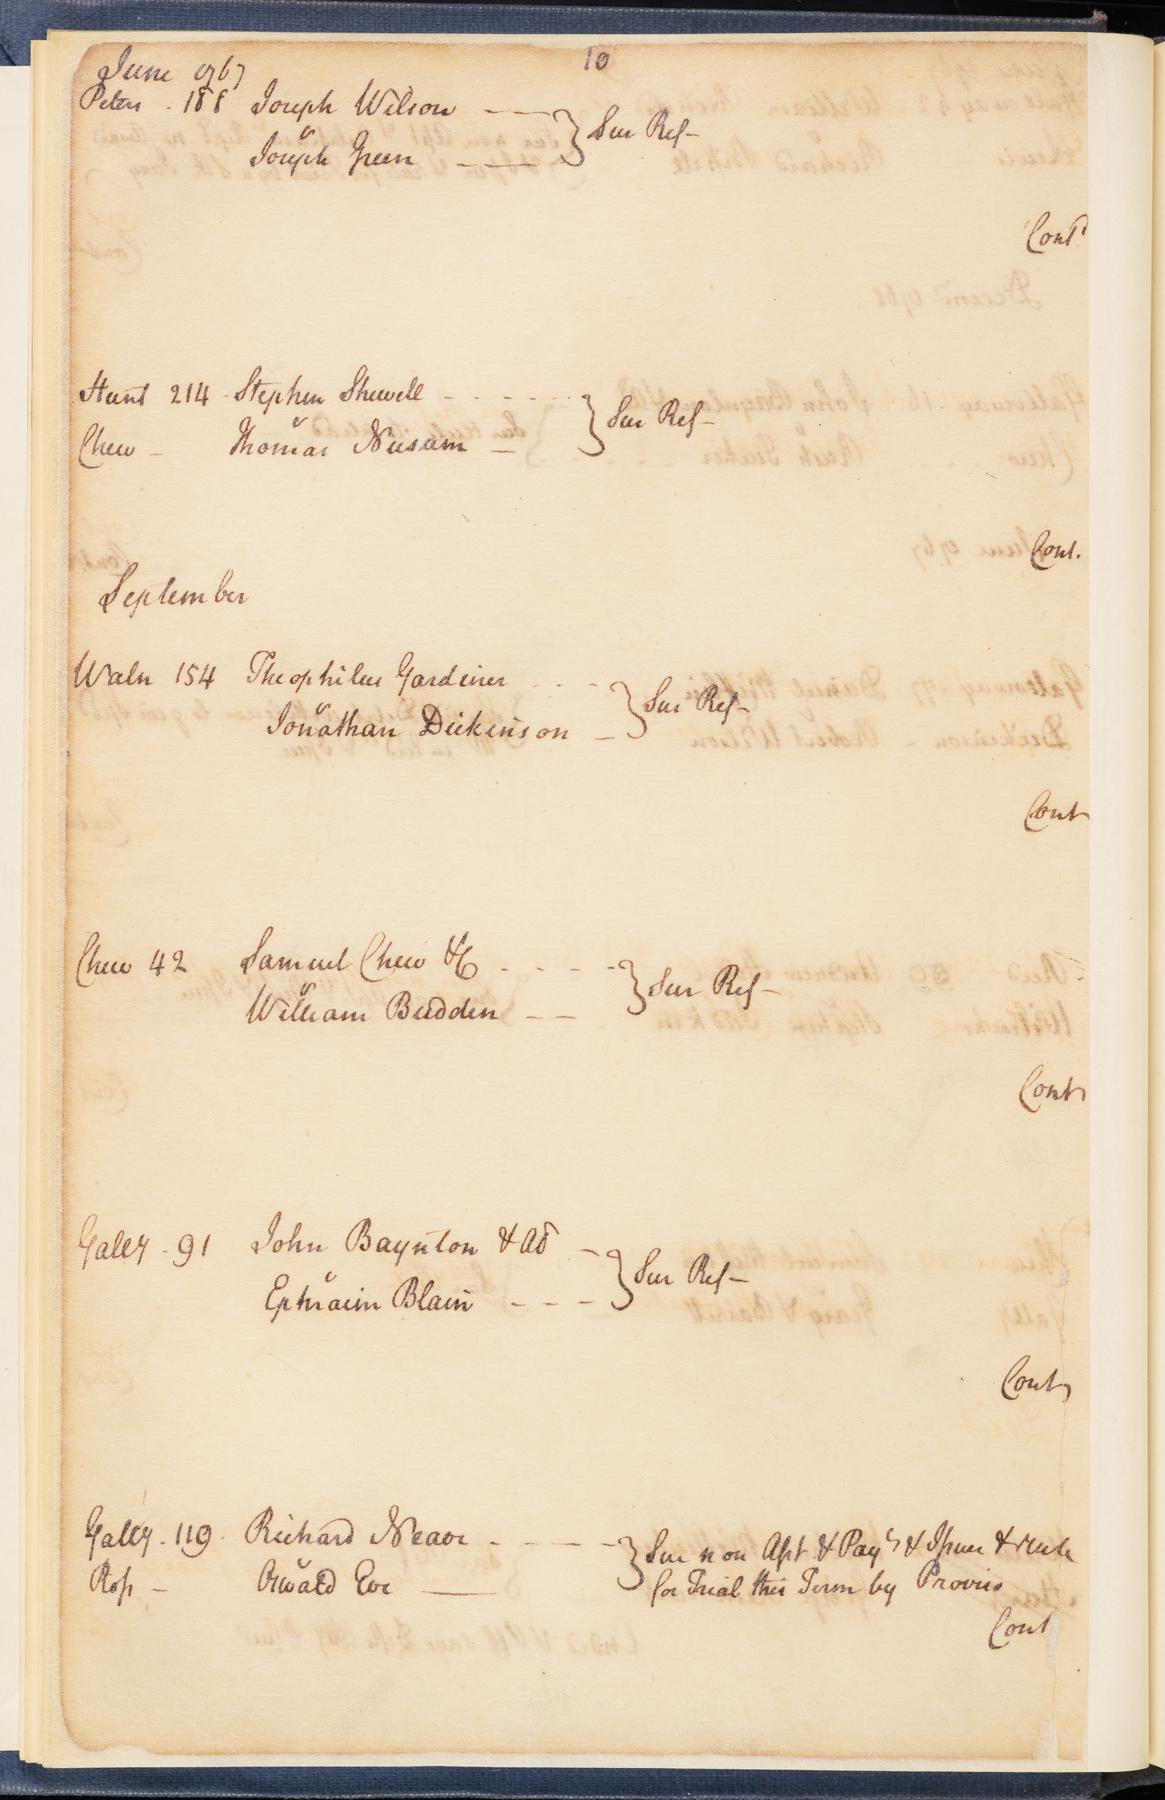 10
June 1767
Peters . 188 Joseph Wilson
v
Joseph Green
Sur Ref-
Cont
Hunt 214 Stephen Shewell
v
Chew - Thomas Nusum
Sur Ref-
Cont.
September
Waln 154 Theophilus Gardiner
v
Jonathan Dickinson
Sur Ref-
Cont
Chew 42 Samuel Chew & Co
v
William Budden
Sur Ref-
Cont
Gally . 91 John Baynton & al
v
Ephraim Blain
Sur Ref-
Cont
Gally . 119 Richard Neave
v
Ross - Oswald Eve
Sur non Apt & Pay & Issue & rule
for Trial this Term by Proviso
Cont